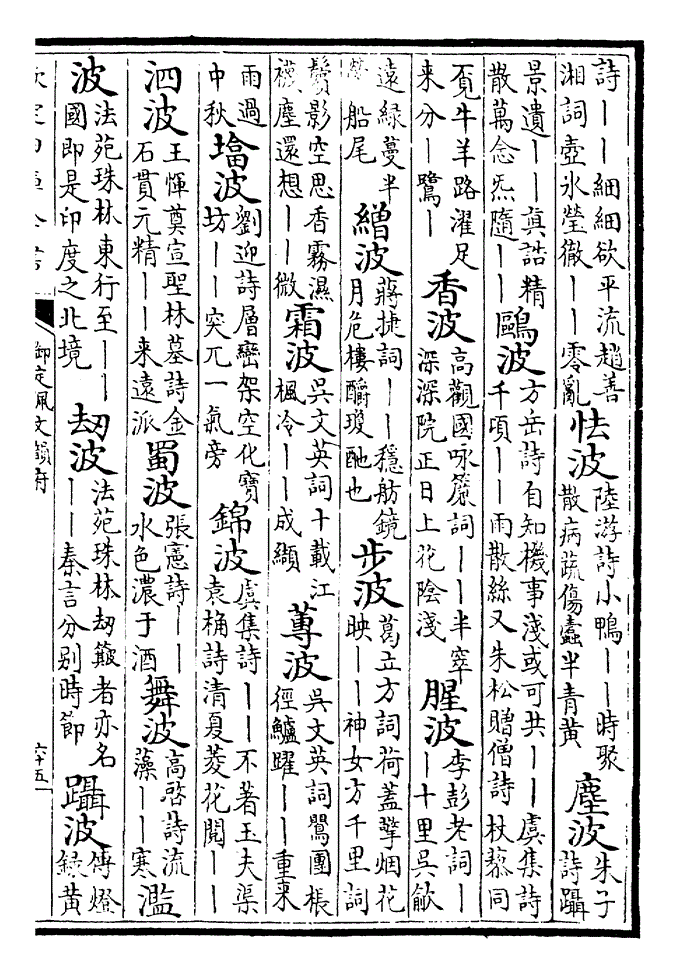 詩丨丨細細欲平流趙善
湘詞壺氷瑩徹丨丨零亂
怯波
陸游詩小鴨丨丨時聚
散病蔬傷蠹半青黃
塵波
朱子
詩躡
景遺丨丨真誥精
散萬念炁隨丨丨
鷗波
方岳詩自知機事淺或可共丨丨虞集詩
千頃丨丨雨散絲又朱松贈僧詩杖藜同
覔牛羊路濯足
来分丨鷺丨
香波
高觀國咏簾詞丨丨半窣
深深院正日上花陰淺
腥波
李彭老詞丨
丨十里吳歈
遠緑蔓半
船尾
繒波
蔣捷詞丨丨穩舫鏡
月危樓釂瓊酏也
步波
葛立方詞荷蓋擎烟花
映丨丨神女方千里詞
鬢影空思香霧濕
襪塵還想丨丨微
霜波
吳文英詞十載江
楓冷丨丨成纈
蓴波
吳文英詞鷖團棖
徑鱸躍丨丨重来
雨過
中秋
墖波
劉迎詩層巒架空化寶
坊丨丨突兀一氣旁
錦波
虞集詩丨丨不著玉夫渠
袁桷詩清夏菱花開丨丨
泗波
王惲奠宣聖林墓詩金
石貫元精丨丨来遠派
蜀波
張憲詩丨丨
水色濃于酒
舞波
高啓詩流
藻丨丨寒
濫
波
法苑珠林東行至丨丨
國即是印度之北境
劫波
法苑珠林劫簸者亦名
丨丨秦言分别時節
躡波
傳燈
録黃
欽定四庫全書
御定佩文韻府
六十五